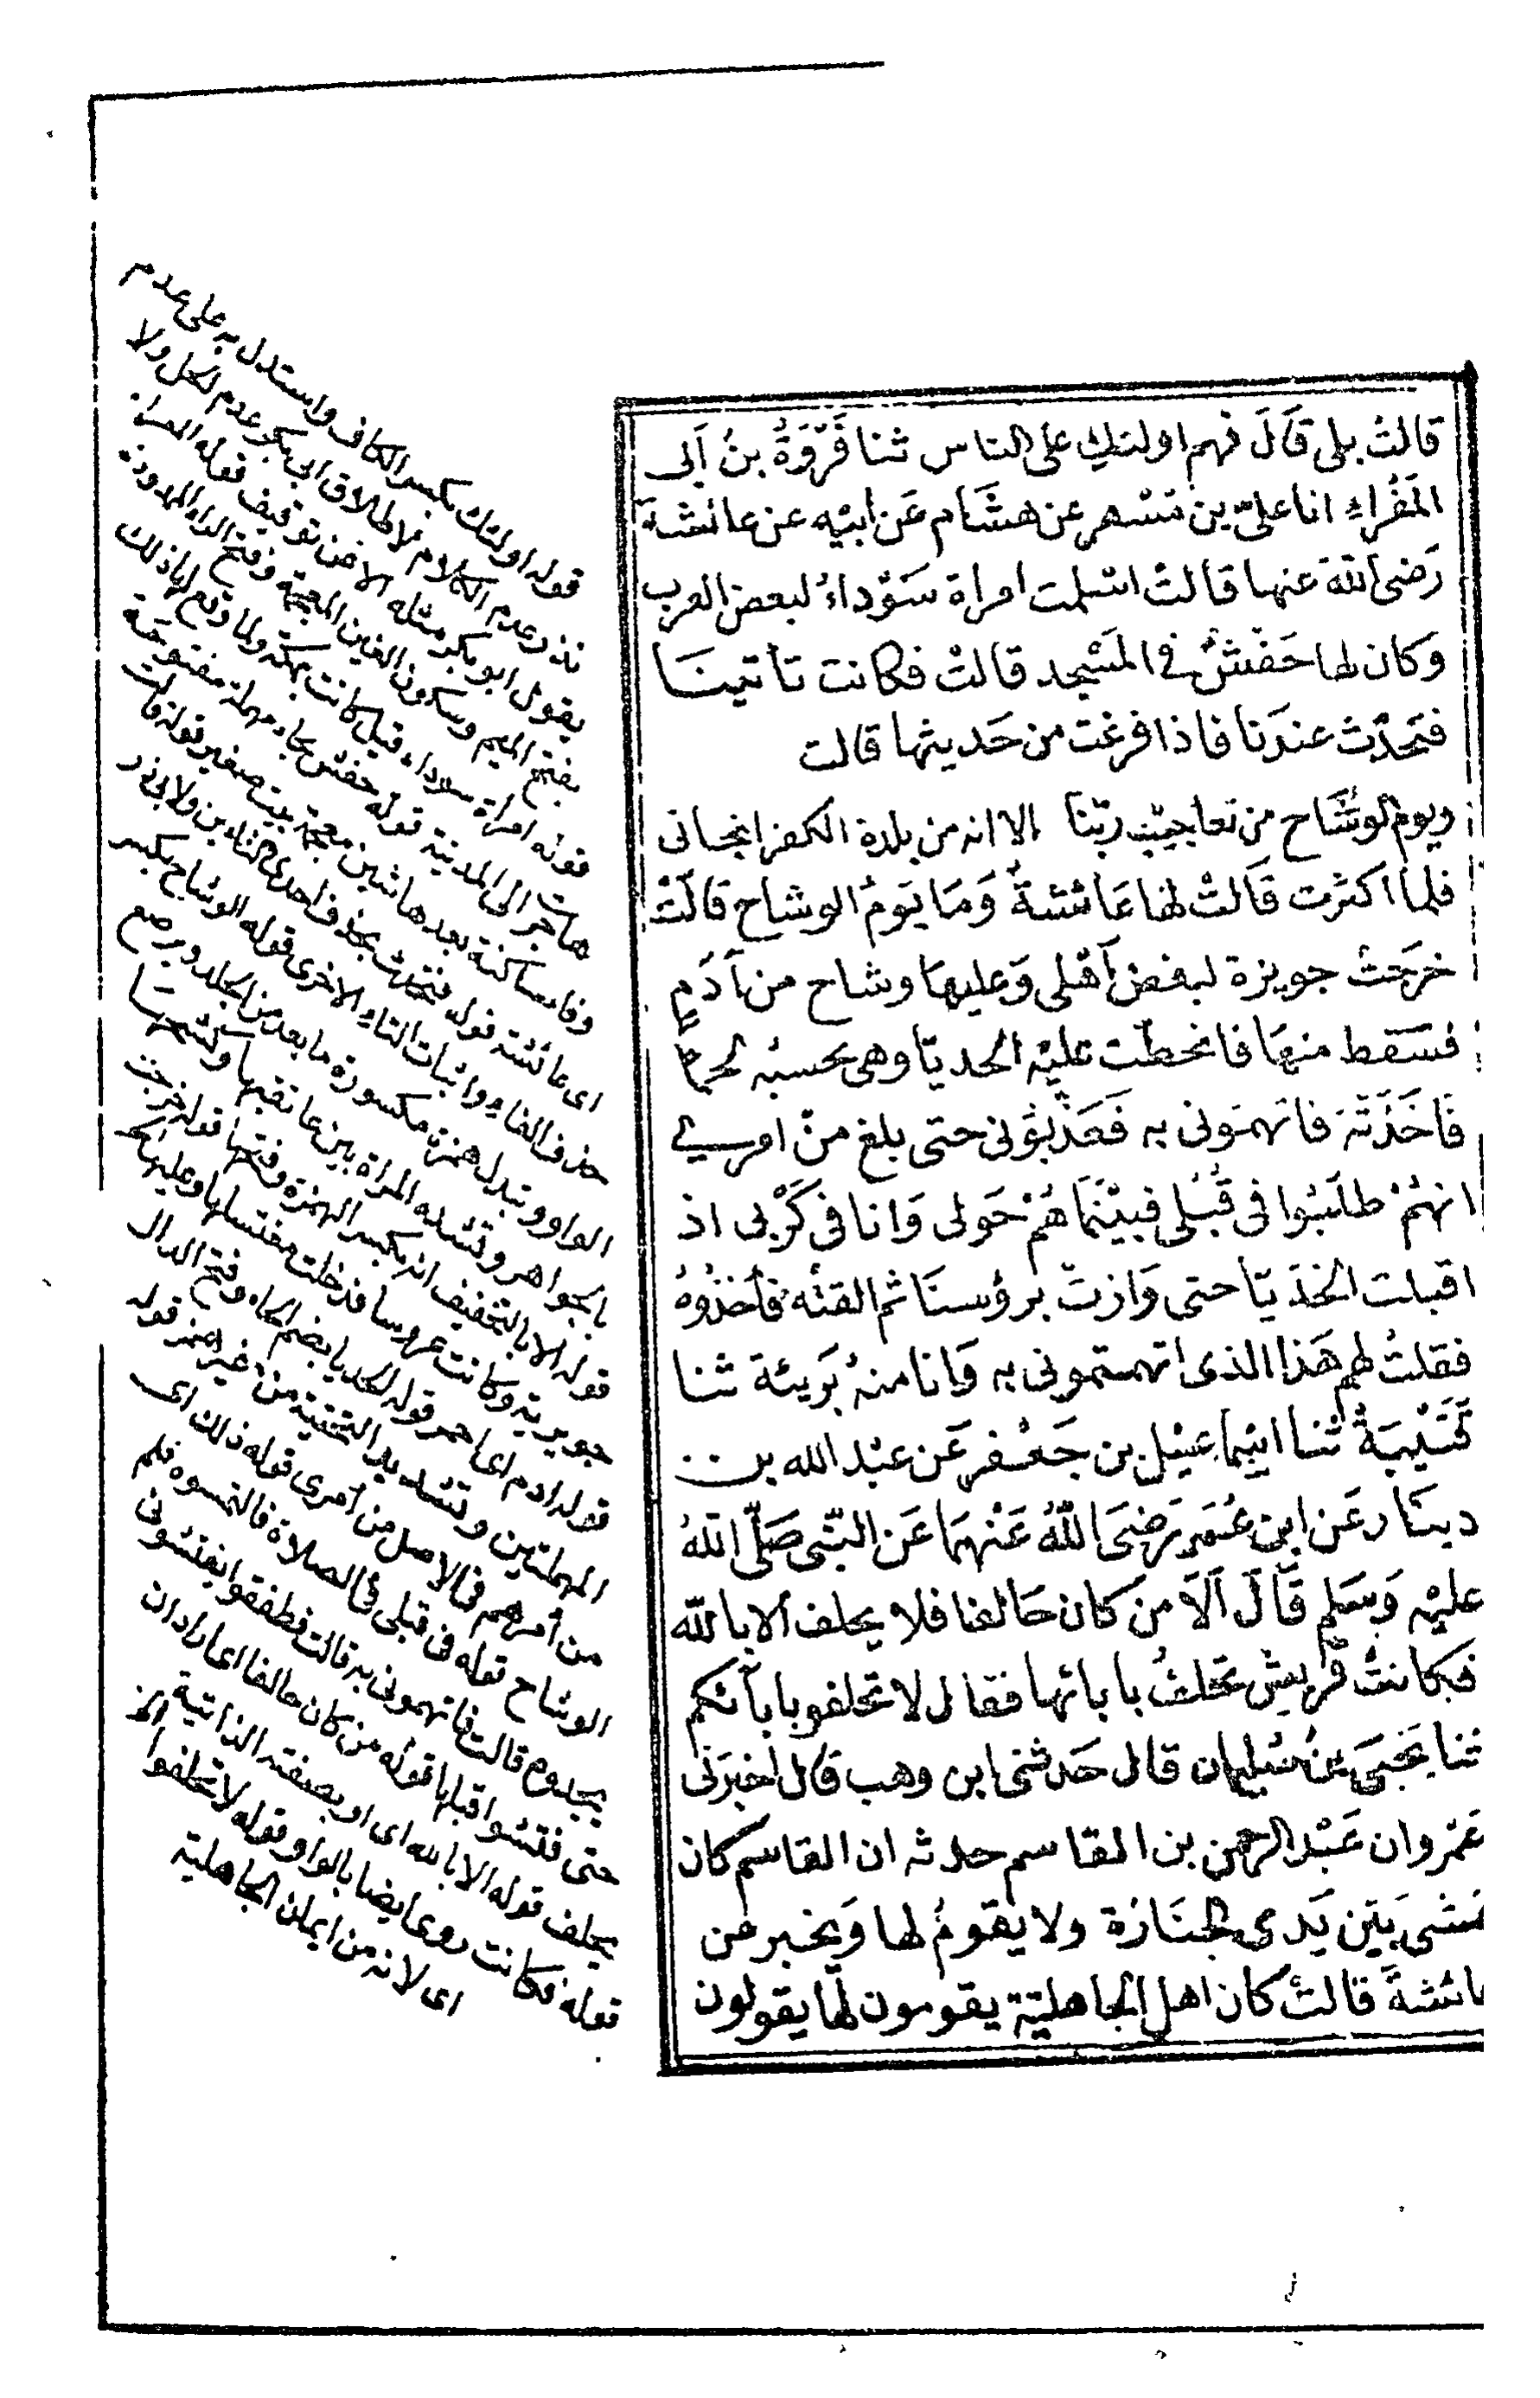 قالتْ بلى قَالَ فهم اولئكِ على الناس ثنا فَرْوَةُ بنُ اَبى
المَغْراءِ انا علىّ بن مُسْهر عن هشَام عَن ابيْه عن عائشةَ
رَضى اللّٰهُ عنها قالتْ اسْلمت امراة سَوْداءُ لبعض العرب
وَكان لها حَفشٌ فى المَسْجد قالتْ فكانت تأتينَا
فتحدّث عندَنا فاذا فرغت من حَديثها قالت
ويوم الوشَاح من تعاجيْب ربّنا الا انه من بلدة الكفر انجانى
فلما اكثرت قَالتْ لها عَائشةُ وَمَا يَومُ الوشاح قالَتْ
خرجَتْ جويرة لبعْض اَهْلى وَعليهَا وشاح من اَدَمٍ
فسَقط منهَا فانحطّت عليْه الحديّا وهى تحسبُه لحمًا
فَاخَذَتْهُ فاتهمَونى به فَعَذّبُوْنى حتى بلغ منْ امرى
انهُمْ طلَبُوا فى قُبُلى فبيْنَمَا هُمْ حَولى وَانا فى كَرْبى اذ
اقبلت الحُدَيّا حتى وَازتْ برؤسنَا ثم القتْه فأخذُوْهُ
فقلتُ لهم هَذا الذى اتهمتمونى به وَانا منهُ بَريئة ثنا
قُتَيْبَةُ ثنا اسْمٰعيْل بن جَعْفر عَن عبْد الله بن
دينَار عَن ابن عُمَر رَضىَ اللّٰهُ عَنْهمَا عَن النّبى صَلّى اللّٰهُ
عليْه وَسَلم قَالَ اَلَا منْ كان حَالفا فلا يحلف الا باللّٰه
فكانتْ قُريش تحَلفُ بابائها فقال لا تحلفوا بابآئكم
ثنا يَحْيَى بنُ سُليمان قال حَدثنى ابن وهب قال اخبرَنى
عَمْرو ان عَبْد الرحمن بن القاسم حدثه ان القاسم كان
يمشى بَيْن يَدى الجنَازة ولا يقومُ لها وَيخبر عن
عائشةَ قالتْ كان اهل الجاهليّة يقومون لها يقولون
قوله اولئك بكسر الكاف واستدل به على عدم
نذر عدم الكلام لاطلاق ابى بكر عدم الحل ولا
يقول ابو بكر مثله الا عن توقيف قوله المغراء
بفتح الميم وسكون الغين المعجمة وفتح الراء الممدودة
قوله امراة سوداء قيل كانت بمكة ولما وقع لها ذلك
هاجرت الى المدينة قوله حفش بحاء مهملة مفتوحة
وفاء ساكنة بعدها شين معجمة بيت صغير قوله قالت
اى عائشة قوله فتحدث بحذف احدى التاءين ولابى ذر
حذف الفاء واثبات التاء الاخرى قوله الوشاح بكسر
الواو وتبدل همزة مكسورة ما يعد من الجلد ويرصع
بالجواهر وتشده المراة بين عاتقيها وكشحها
قوله الا بالتخفيف انه بكسر الهمزة وفتحها قوله خرجت
جويرية وكانت عروسا فدخلت مغتسلها وعليها
قوله ادم اى احمر قوله الحديا بضم الحاء وفتح الدال
المهملتين وتشديد التحتية من غير همز قوله
من امرهم فى الاصل من امرى قوله ذلك اى
الوشاح قوله فى قبلى فى الصلاة فالتمسوه فلم
يجدوه قالت فاتهمونى به قالت فطفقوا يفتشونى
حتى فتشوا قبلها قوله من كان حالفا اى اراد ان
يحلف قوله الا بالله اى او بصفته الذاتية
قوله فكانت روى ايضا بالواو قوله لا تحلفوا
اى لانه من ايمان الجاهلية